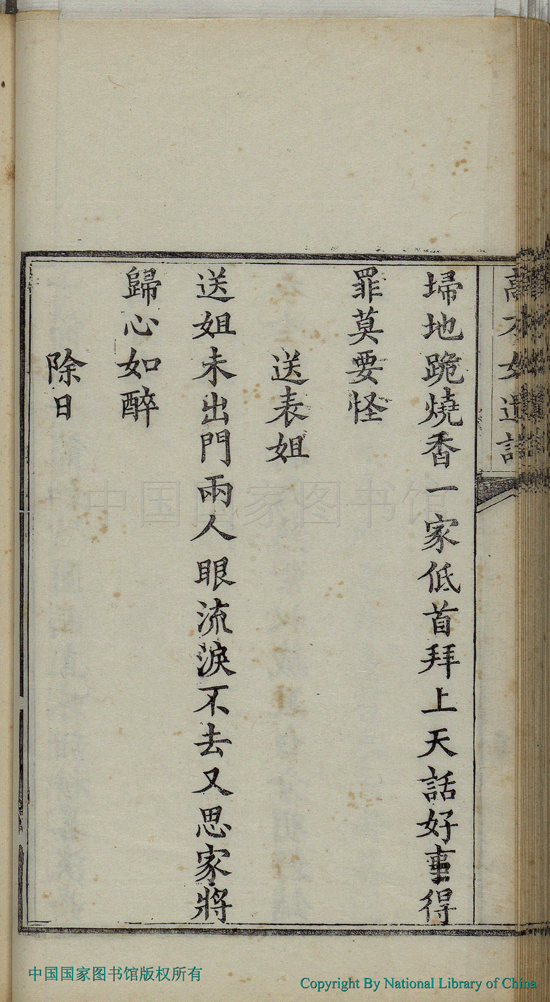 埽地跪燒香一家低首拜上天話好事得
罪莫要怪
送表姐
送姐未出門兩人眼流淚不去又思家將
歸心如醉
除日
中国国家图书馆
中国国家图书馆版权所有
Copyright By National Library of China